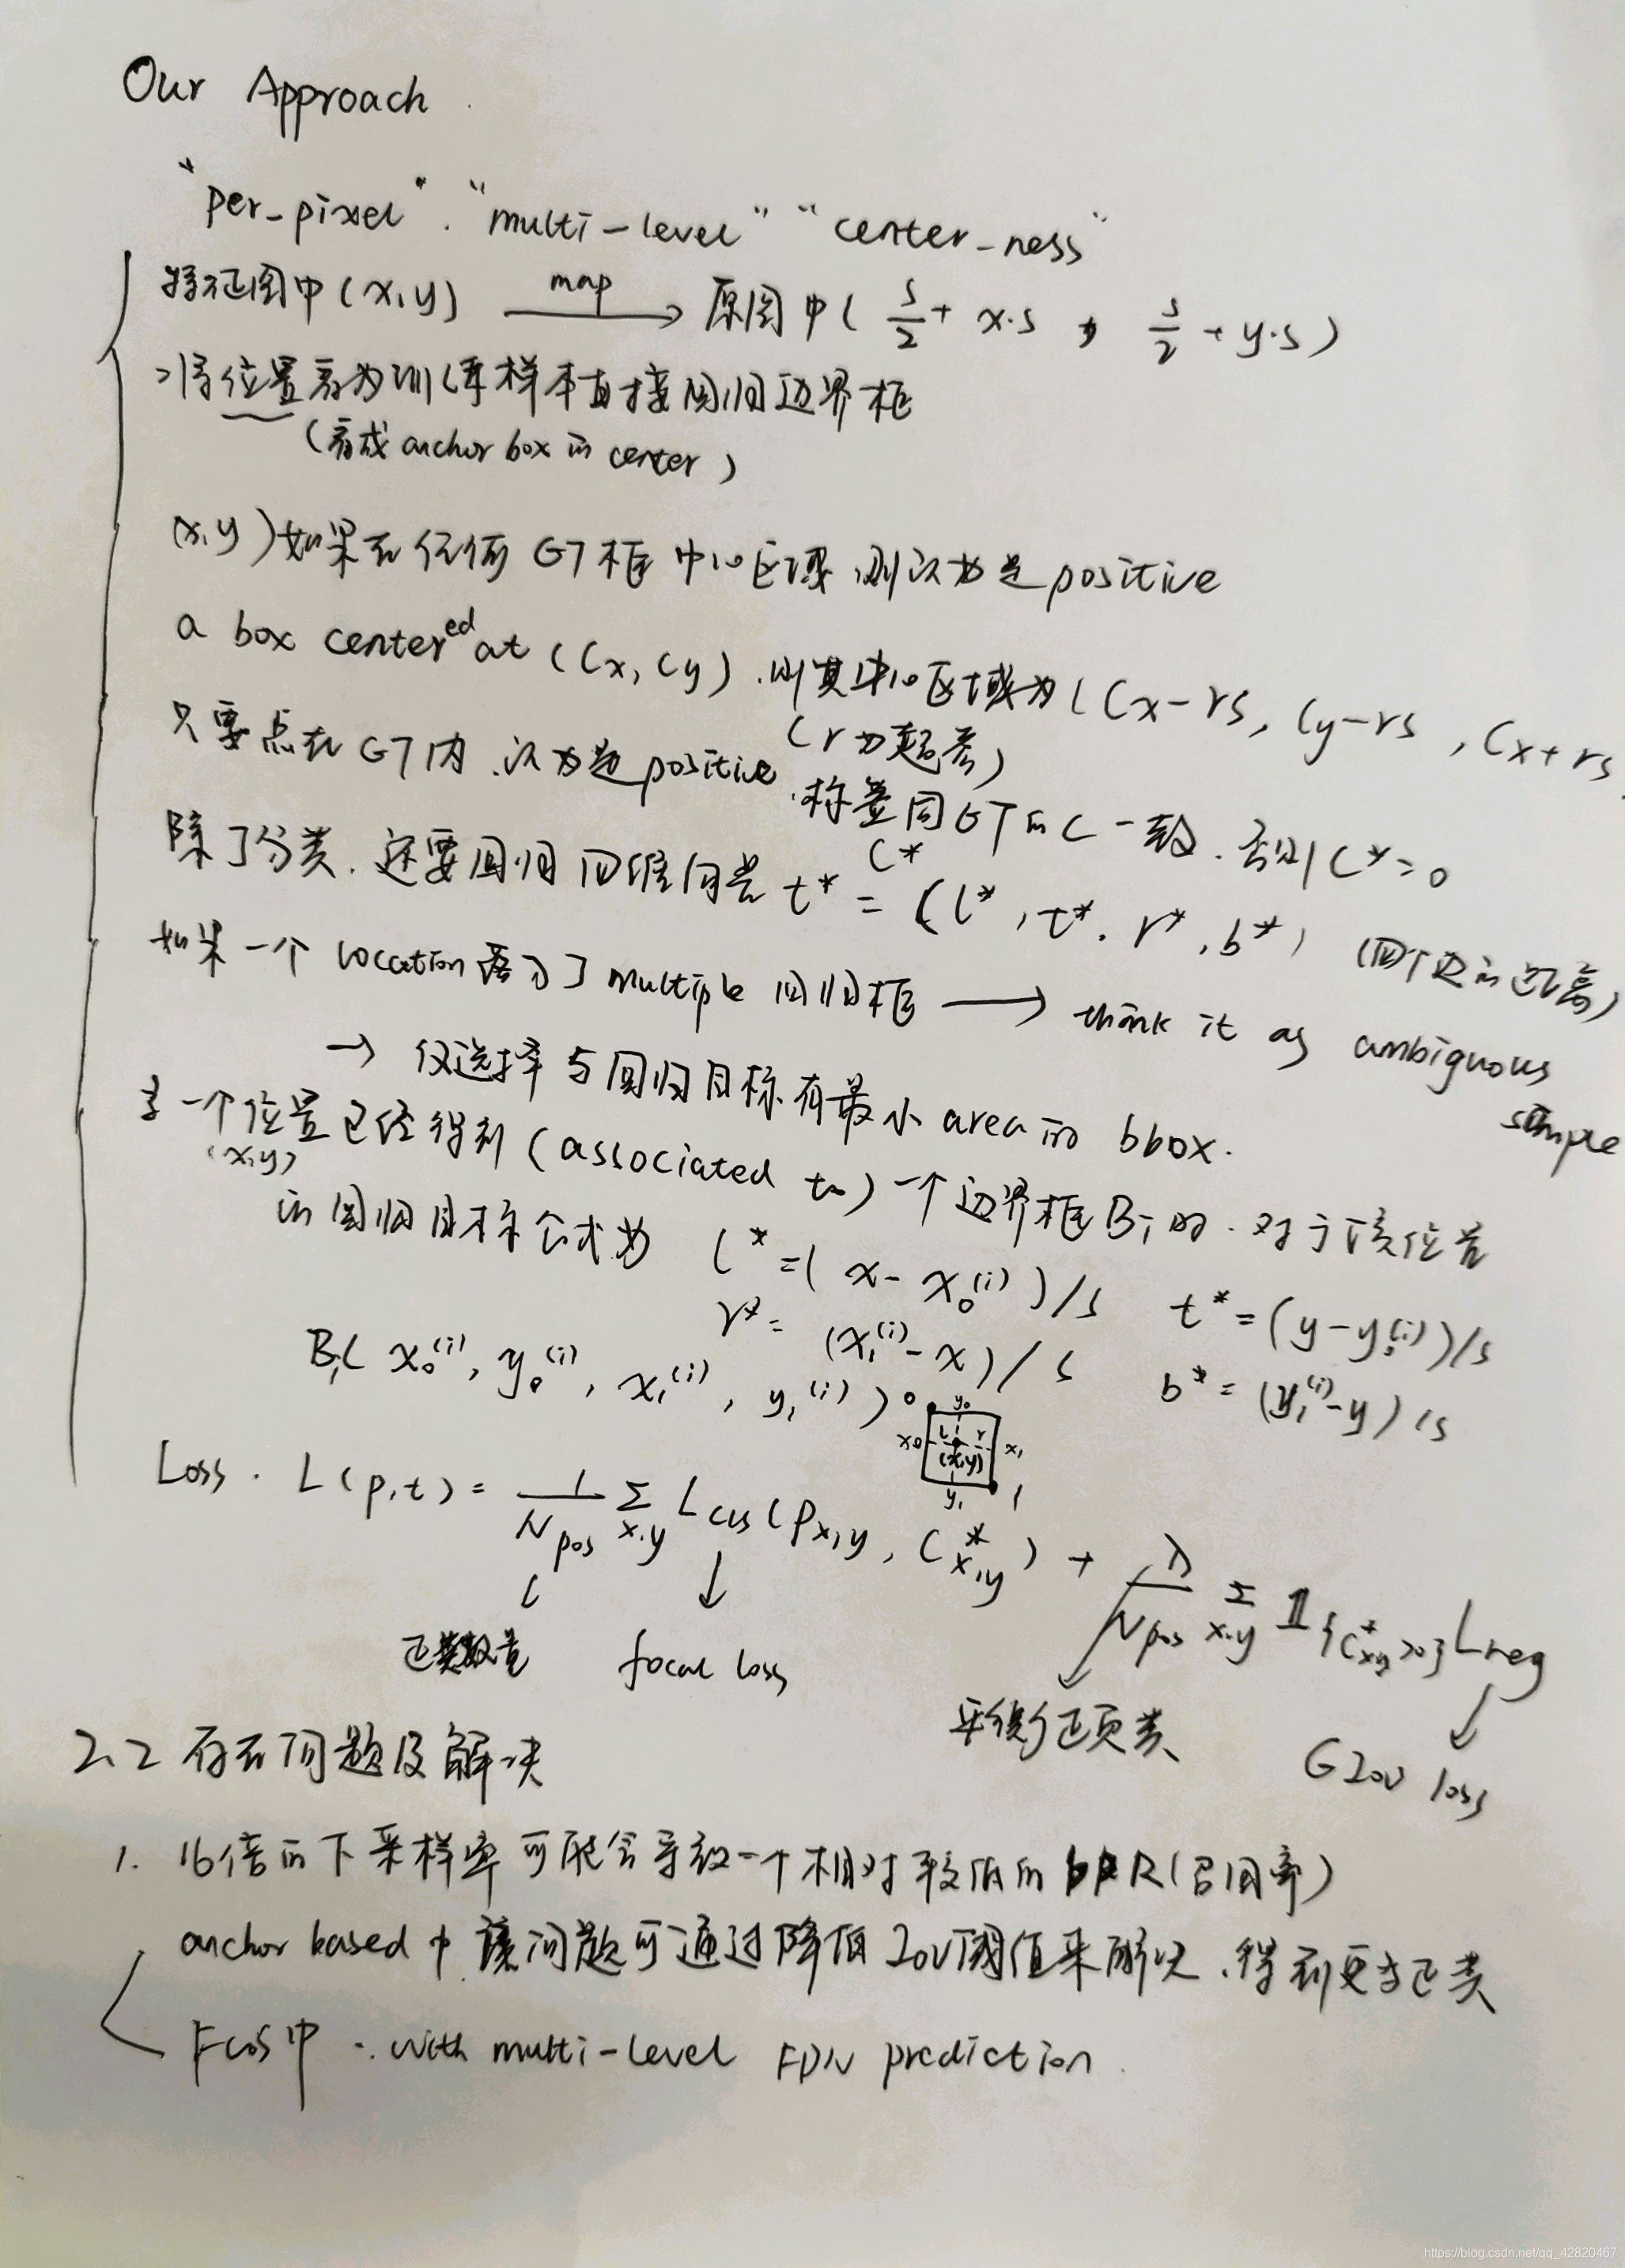 Our Approach
"per-pixel". "multi-level" "center-ness"
特征图中(x,y) map → 原图中( s/2 + x·s , s/2 + y·s )
将位置看为训练样本直接回归边界框
(看成 anchor box 的 center)
(x,y)如果在任何 GT框 中心区域,则认为是positive
a box centered at (Cx, Cy). 则其中心区域为(Cx-rs, Cy-rs, Cx+rs
(r为超参)
只要点在GT内.认为是positive.标签同GT的C一致.否则C*=0
C*
除了分类.还要回归四维向量 t* = (l*, t*. r*, b*) (四个边的距离)
如果一个 location 落入了 multiple 回归框 → think it as ambiguous
sample
→ 仅选择与回归目标有最小area的 bbox.
当一个位置已经得到(associated to)一个边界框Bi时.对于该位置
(x,y)
的回归目标公式为 l* = (x - x₀⁽ⁱ⁾)/s t* = (y - y₀⁽ⁱ⁾)/s
r* = (x₁⁽ⁱ⁾ - x)/s b* = (y₁⁽ⁱ⁾ - y)/s
Bi( x₀⁽ⁱ⁾, y₀⁽ⁱ⁾, x₁⁽ⁱ⁾, y₁⁽ⁱ⁾ )
0 y₀
x₀ l r x₁
(x,y)
y₁ 1
Loss. L(p,t) = 1/Npos Σx,y Lcls(Px,y, C*x,y) + λ/Npos Σx,y 𝟙{C*x,y>0} Lreg
正类数量 focal loss
平衡正负类 GIoU loss
2.2 存在问题及解决
1. 16倍的下采样率可能会导致一个相对较低的 BPR(召回率)
anchor based中.该问题可通过降低IoU阈值来解决.得到更多正类
FCOS中 .: with multi-level FPN prediction.
https://blog.csdn.net/qq_42820467